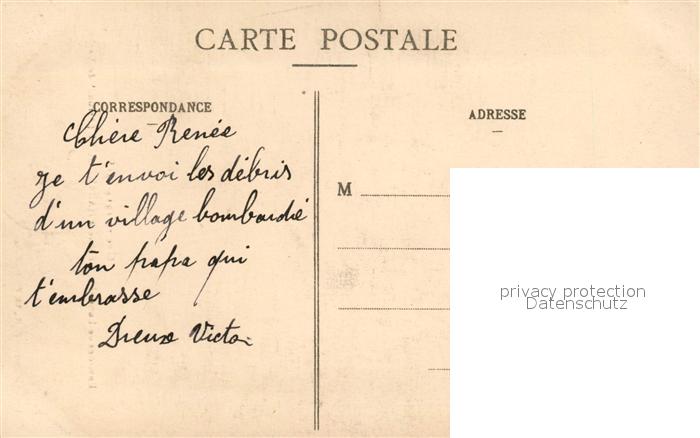 CARTE POSTALE
CORRESPONDANCE
ADRESSE
Chère Renée
je t'envoi les débris
d'un village bombardé
ton papa qui
t'embrasse
Dreux Victor
M
privacy protection
Datenschutz